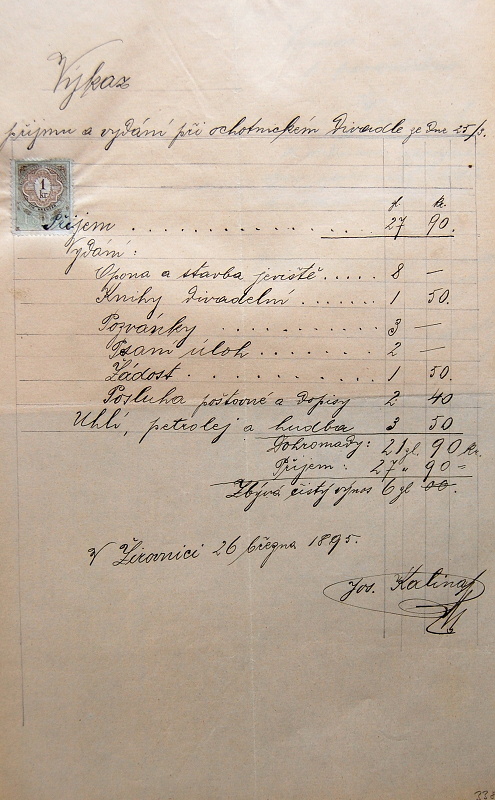 Výkaz
příjmu a vydání při ochotnickém Divadle ze Dne 25/3.
1
kr.
zl. kr.
Příjem . . . . . . . . . . . . . . . . 27 90.
Vydání :
Opona a stavba jeviště . . . . . 8 —
Knihy divadelní . . . . . . . 1 50.
Pozvánky . . . . . . . . . . . 3 —
Psaní úloh . . . . . . . . . . 2 —
Žádost . . . . . . . . . . . . 1 50.
Posluha poštovné a Dopisy 2 40
Uhlí, petrolej a hudba 3 50
Dohromady: 21 zl. 90 kr.
Příjem : 27 „ 90 „
Zbývá čistý výnos 6 zl 00.
V Žirovnici 26 března 1895.
Jos. Kalina